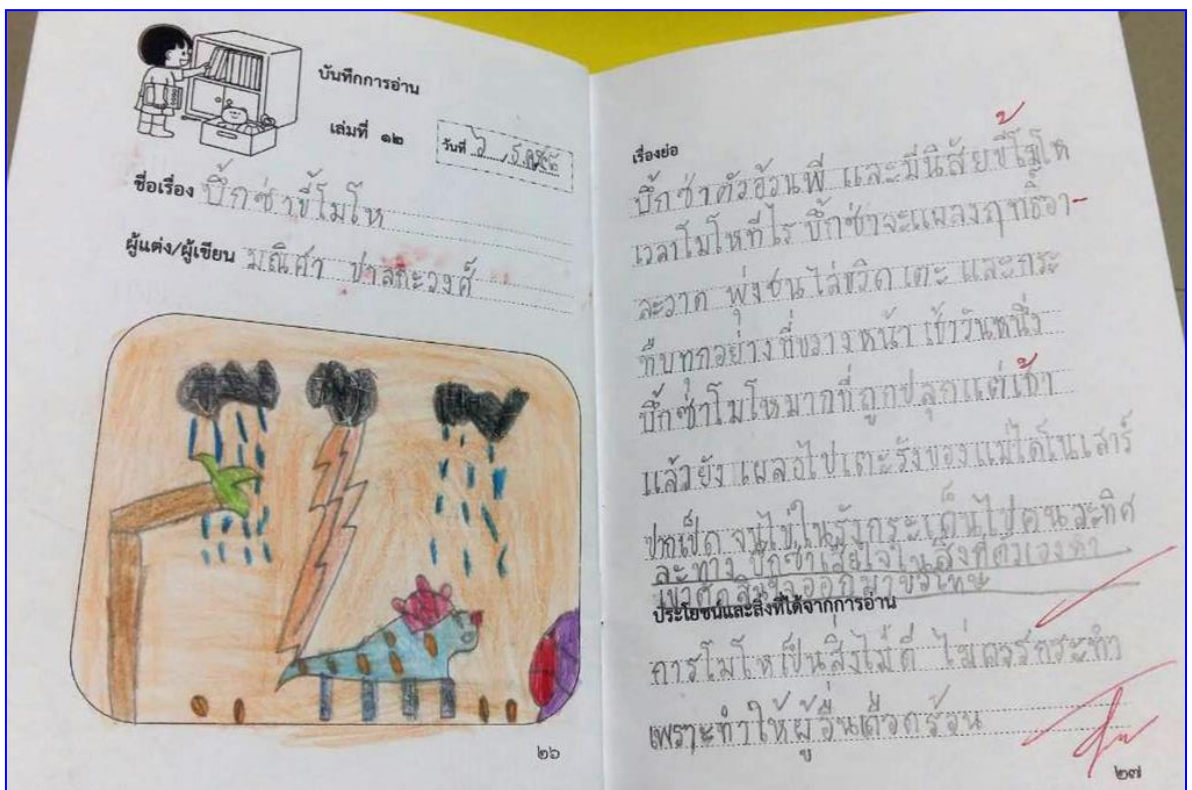 บันทึกการอ่าน
เล่มที่ ๑๒
วันที่ ๖ ธ.ค.
ชื่อเรื่อง บิ๊กซ่าขี้โมโห
ผู้แต่ง/ผู้เขียน มณิศา ปาลกะวงศ์
๒๖
เรื่องย่อ
บิ๊กซ่าตัวอ้วนพี และมีนิสัยขี้โมโห
เวลาโมโหทีไร บิ๊กซ่าจะแผลงฤทธิ์อา-
ละวาด พุ่งชนไล่ขวิด เตะ และกระ
ทืบทุกอย่างที่ขวางหน้า เช้าวันหนึ่ง
บิ๊กซ่าโมโหมากที่ถูกปลุกแต่เช้า
แล้วยัง เผลอไปเตะรังของแม่ไดโนเสาร์
ปากเป็ด จนไข่ในรังกระเด็นไปคนละทิศ
ละทาง บิ๊กซ่าเสียใจในสิ่งที่ตัวเองทำ
เขาตัดสินใจออกมาขอโทษ
ประโยชน์และสิ่งที่ได้จากการอ่าน
การโมโหเป็นสิ่งไม่ดี ไม่ควรกระทำ
เพราะทำให้ผู้อื่นเดือดร้อน
๒๗